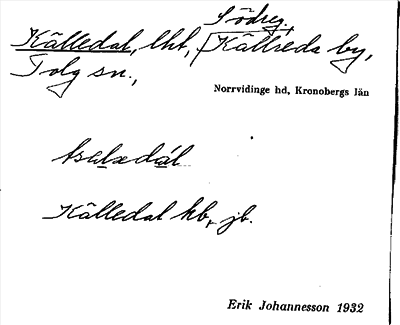 Södreg.,
Källedal, lht, Källreda by,
Tolg sn.,
Norrvidinge hd, Kronobergs län
Källedal kb, jb.
Erik Johannesson 1932